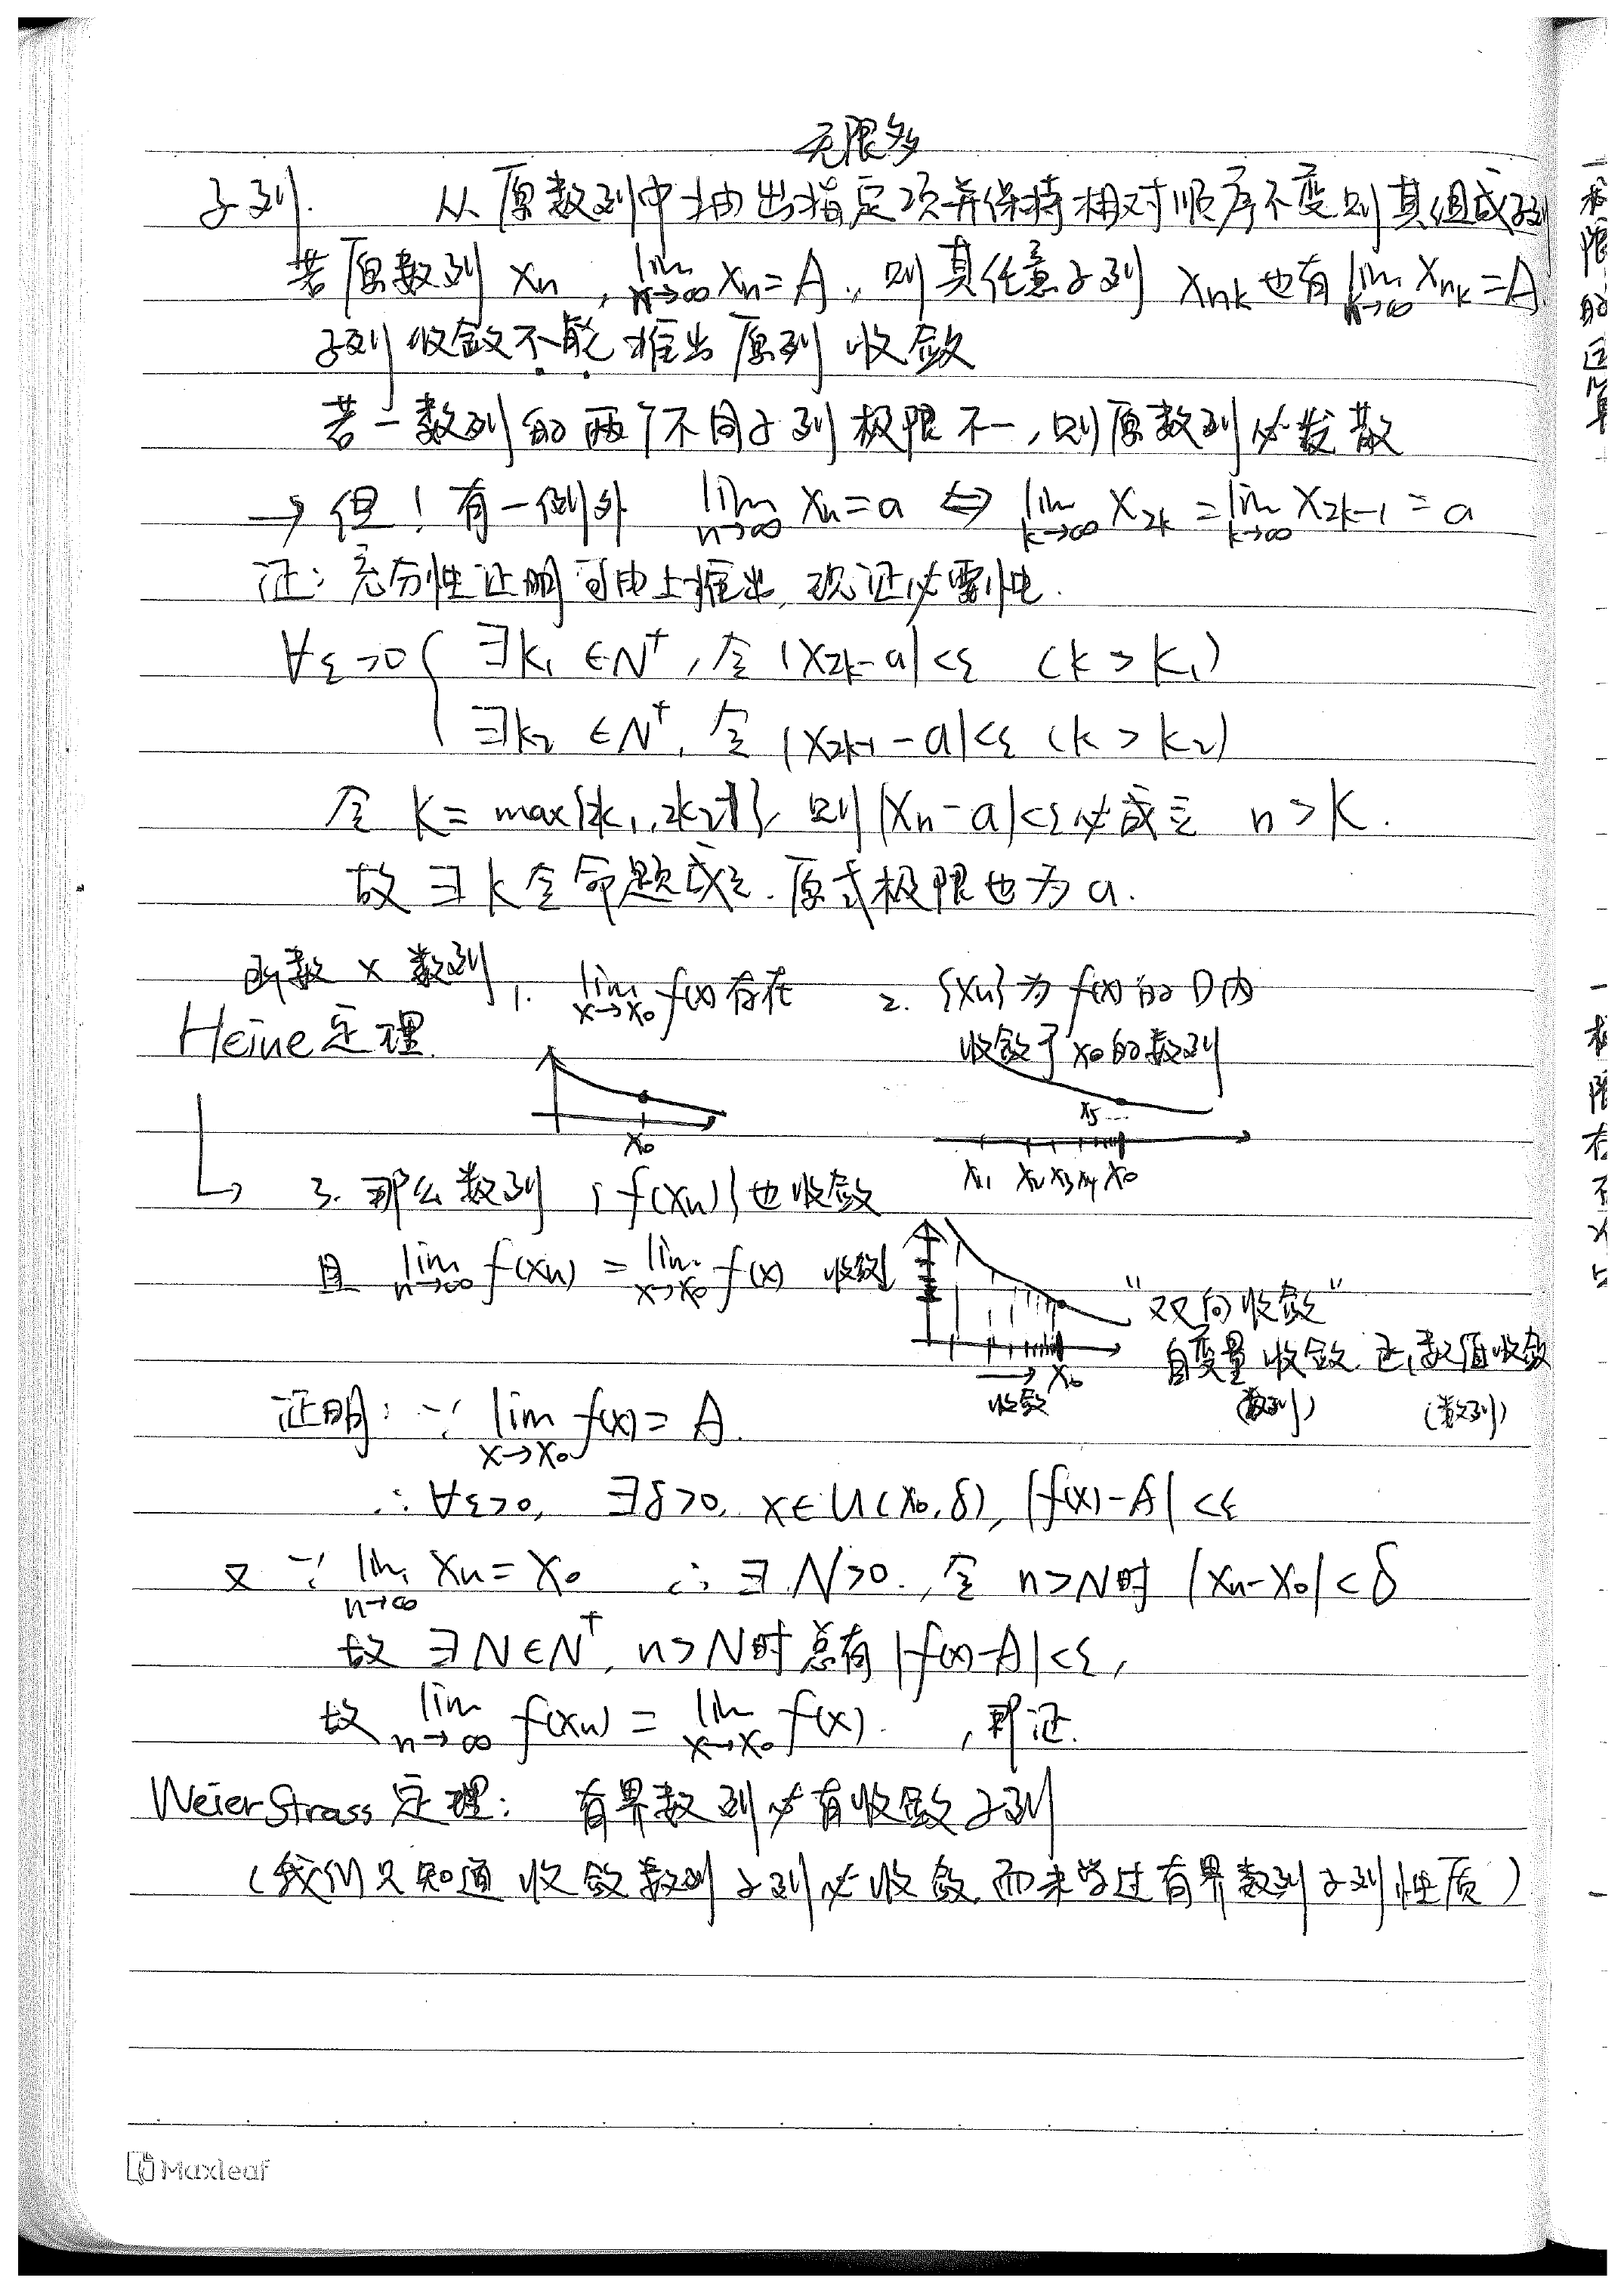 无限多
子列. 从原数列中抽出指定项并保持相对顺序不变则其组成子列
若原数列 xn, lim n→∞ xn=A, 则其任意子列 xnk 也有 lim k→∞ xnk=A.
子列收敛不能推出原列收敛
若一数列的两个不同子列极限不一,则原数列必发散
→ 但!有一例外 lim n→∞ xn=a ⇔ lim k→∞ x2k = lim k→∞ x2k-1 = a
证:充分性证明可由上推出,现证必要性.
∀ε>0 { ∃k1∈N+, 令 |x2k-a|<ε (k>k1)
∃k2∈N+, 令 |x2k-1-a|<ε (k>k2)
令 K=max{2k1,2k2}, 则|xn-a|<ε必成立 n>K.
故∃k令命题成立.原式极限也为a.
函数×数列 1. lim x→x0 f(x)存在 2. {xn}为f(x)的D内
Heine定理. 收敛于x0的数列
x0 x5
x1 x2 x3 x4 x0
↳ 3. 那么数列{f(xn)}也收敛
且 lim n→∞ f(xn) = lim x→x0 f(x) 收敛
"双向收敛"
自变量收敛.函数值收敛
→ x0
收敛 (数列) (数列)
证明: ∵ lim x→x0 f(x)=A.
∴ ∀ε>0, ∃δ>0, x∈U(x0,δ), |f(x)-A|<ε
又∵ lim n→∞ xn=x0 ∴ ∃N>0., 令 n>N时 |xn-x0|<δ
故 ∃N∈N+, n>N时总有|f(x)-A|<ε,
故 lim n→∞ f(xn) = lim x→x0 f(x). ,即证.
WeierStrass定理: 有界数列必有收敛子列
(我们只知道收敛数列子列必收敛,而未学过有界数列子列性质)
Maxleaf
极限的运算